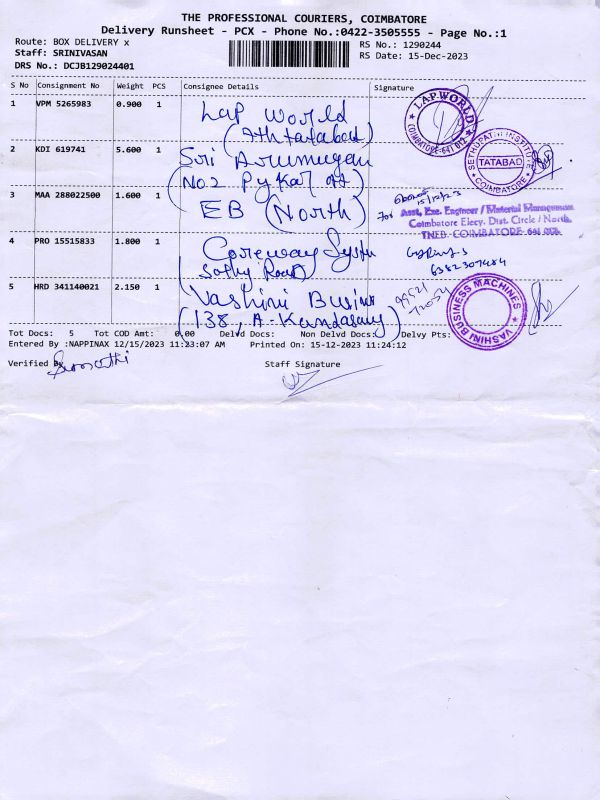 THE PROFESSIONAL COURIERS, COIMBATORE
Delivery Runsheet - PCX - Phone No.:0422-3505555 - Page No.:1
Route: BOX DELIVERY x
RS No.: 1290244
Staff: SRINIVASAN
RS Date: 15-Dec-2023
DRS No.: DCJB129024401
S No Consignment No Weight PCS Consignee Details Signature
1 VPM 5265983 0.900 1 Lap World
LAP WORLD
COIMBATORE-641 012
2 KDI 619741 5.600 1 Sri Arumugan
(No2
SETHUPATHI INSTITUTE
TATABAD
COIMBATORE
3 MAA 288022500 1.600 1 EB (North)
15/12/23
For Asst, Exe. Engineer / Material Management
Coimbatore Elecy. Dist. Circle / North,
TNEB COIMBATORE-641 012.
4 PRO 15515833 1.800 1 Coreway
Sathy Road)
6382307484
5 HRD 341140021 2.150 1 Vashini
(138, A-Kandasamy)
VASHINI BUSINESS MACHINES
Tot Docs: 5 Tot COD Amt: 0.00 Delvd Docs: Non Delvd Docs: Delvy Pts:
Entered By :NAPPINAX 12/15/2023 11:23:07 AM Printed On: 15-12-2023 11:24:12
Verified By
Staff Signature